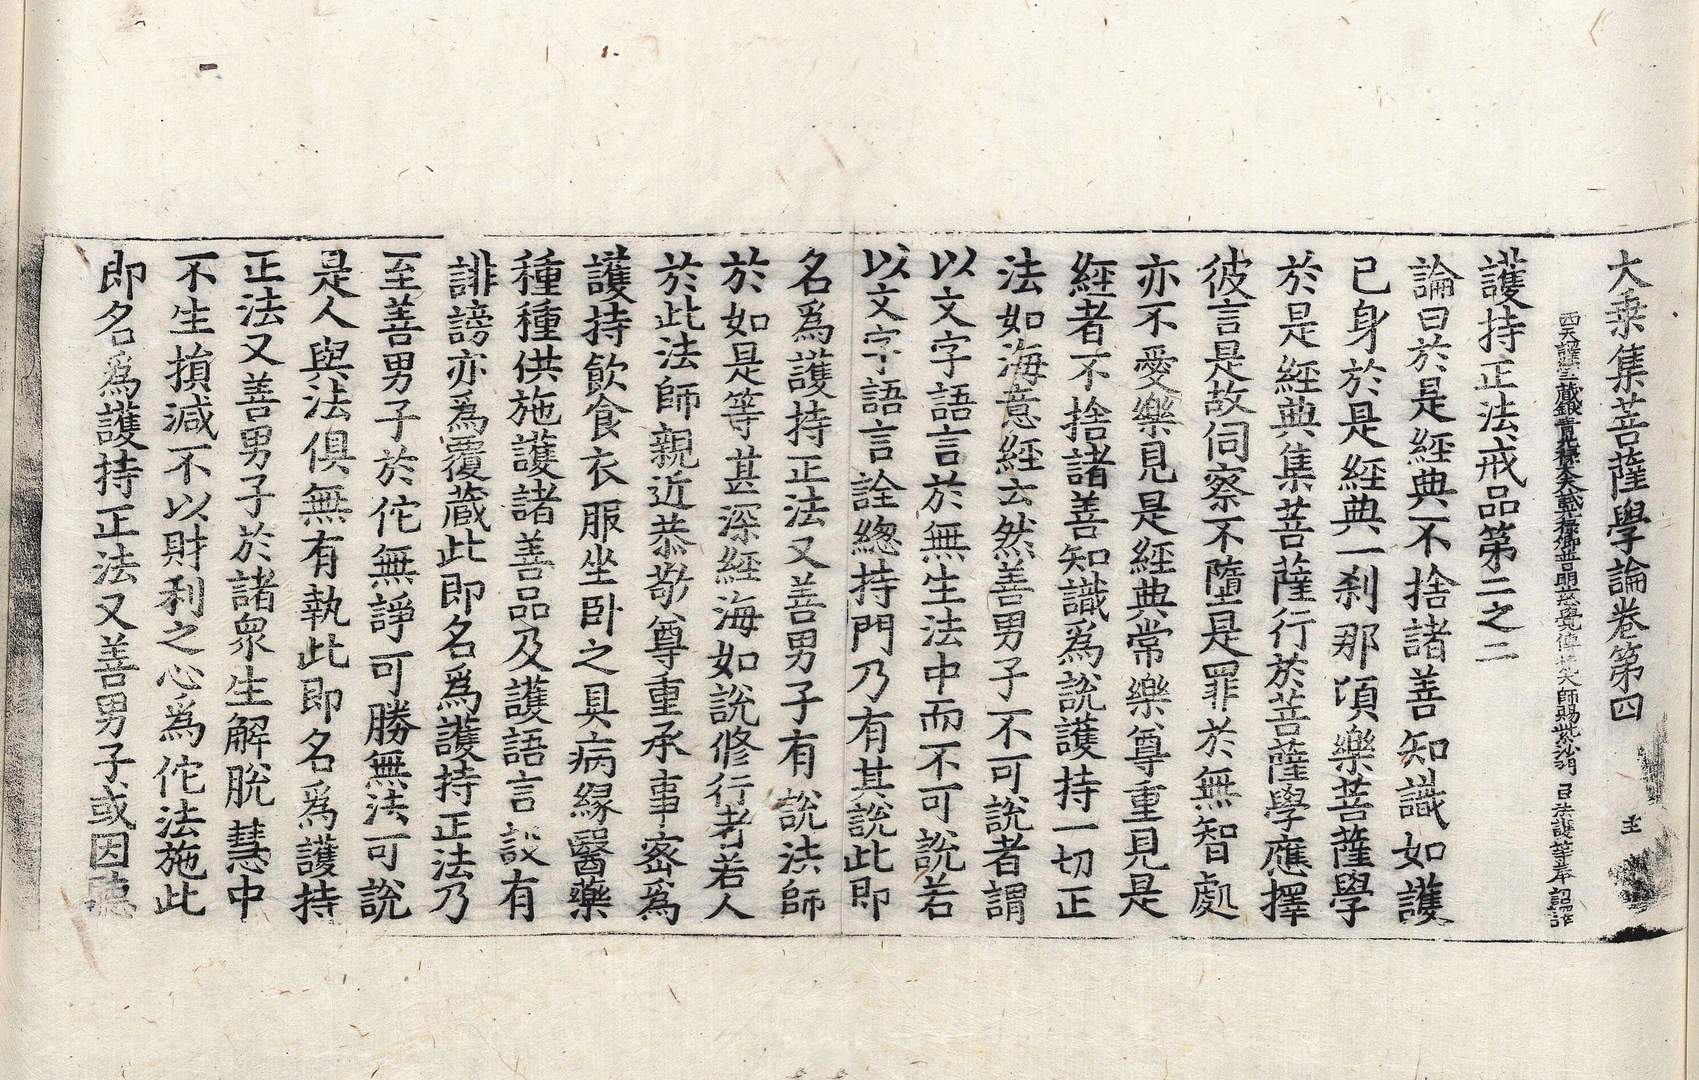 大乗集菩薩學論卷第四
西天譯經三藏銀青光祿大夫試光祿卿普明慈覺傳梵大師賜紫沙門臣法護等奉詔譯
護持正法戒品第二之二
論曰於是經典不捨諸善知識如護
己身於是經典一刹那頃樂菩薩學
於是經典集菩薩行於菩薩學應擇
彼言是故伺察不墮是罪於無智處
亦不愛樂見是經典常樂尊重見是
經者不捨諸善知識爲說護持一切正
法如海意經云然善男子不可說者謂
以文字語言於無生法中而不可說若
以文字語言詮緫持門乃有其說此即
名爲護持正法又善男子有說法師
於如是等甚深經海如說修行者若人
於此法師親近恭敬尊重承事密爲
護持飲食衣服坐卧之具病緣醫藥
種種供施護諸善品及護語言設有
誹謗亦爲覆藏此即名爲護持正法乃
至善男子於佗無諍可勝無法可說
是人與法俱無有執此即名爲護持
正法又善男子於諸衆生解脫慧中
不生損減不以財利之心爲佗法施此
即名爲護持正法又善男子或因聽